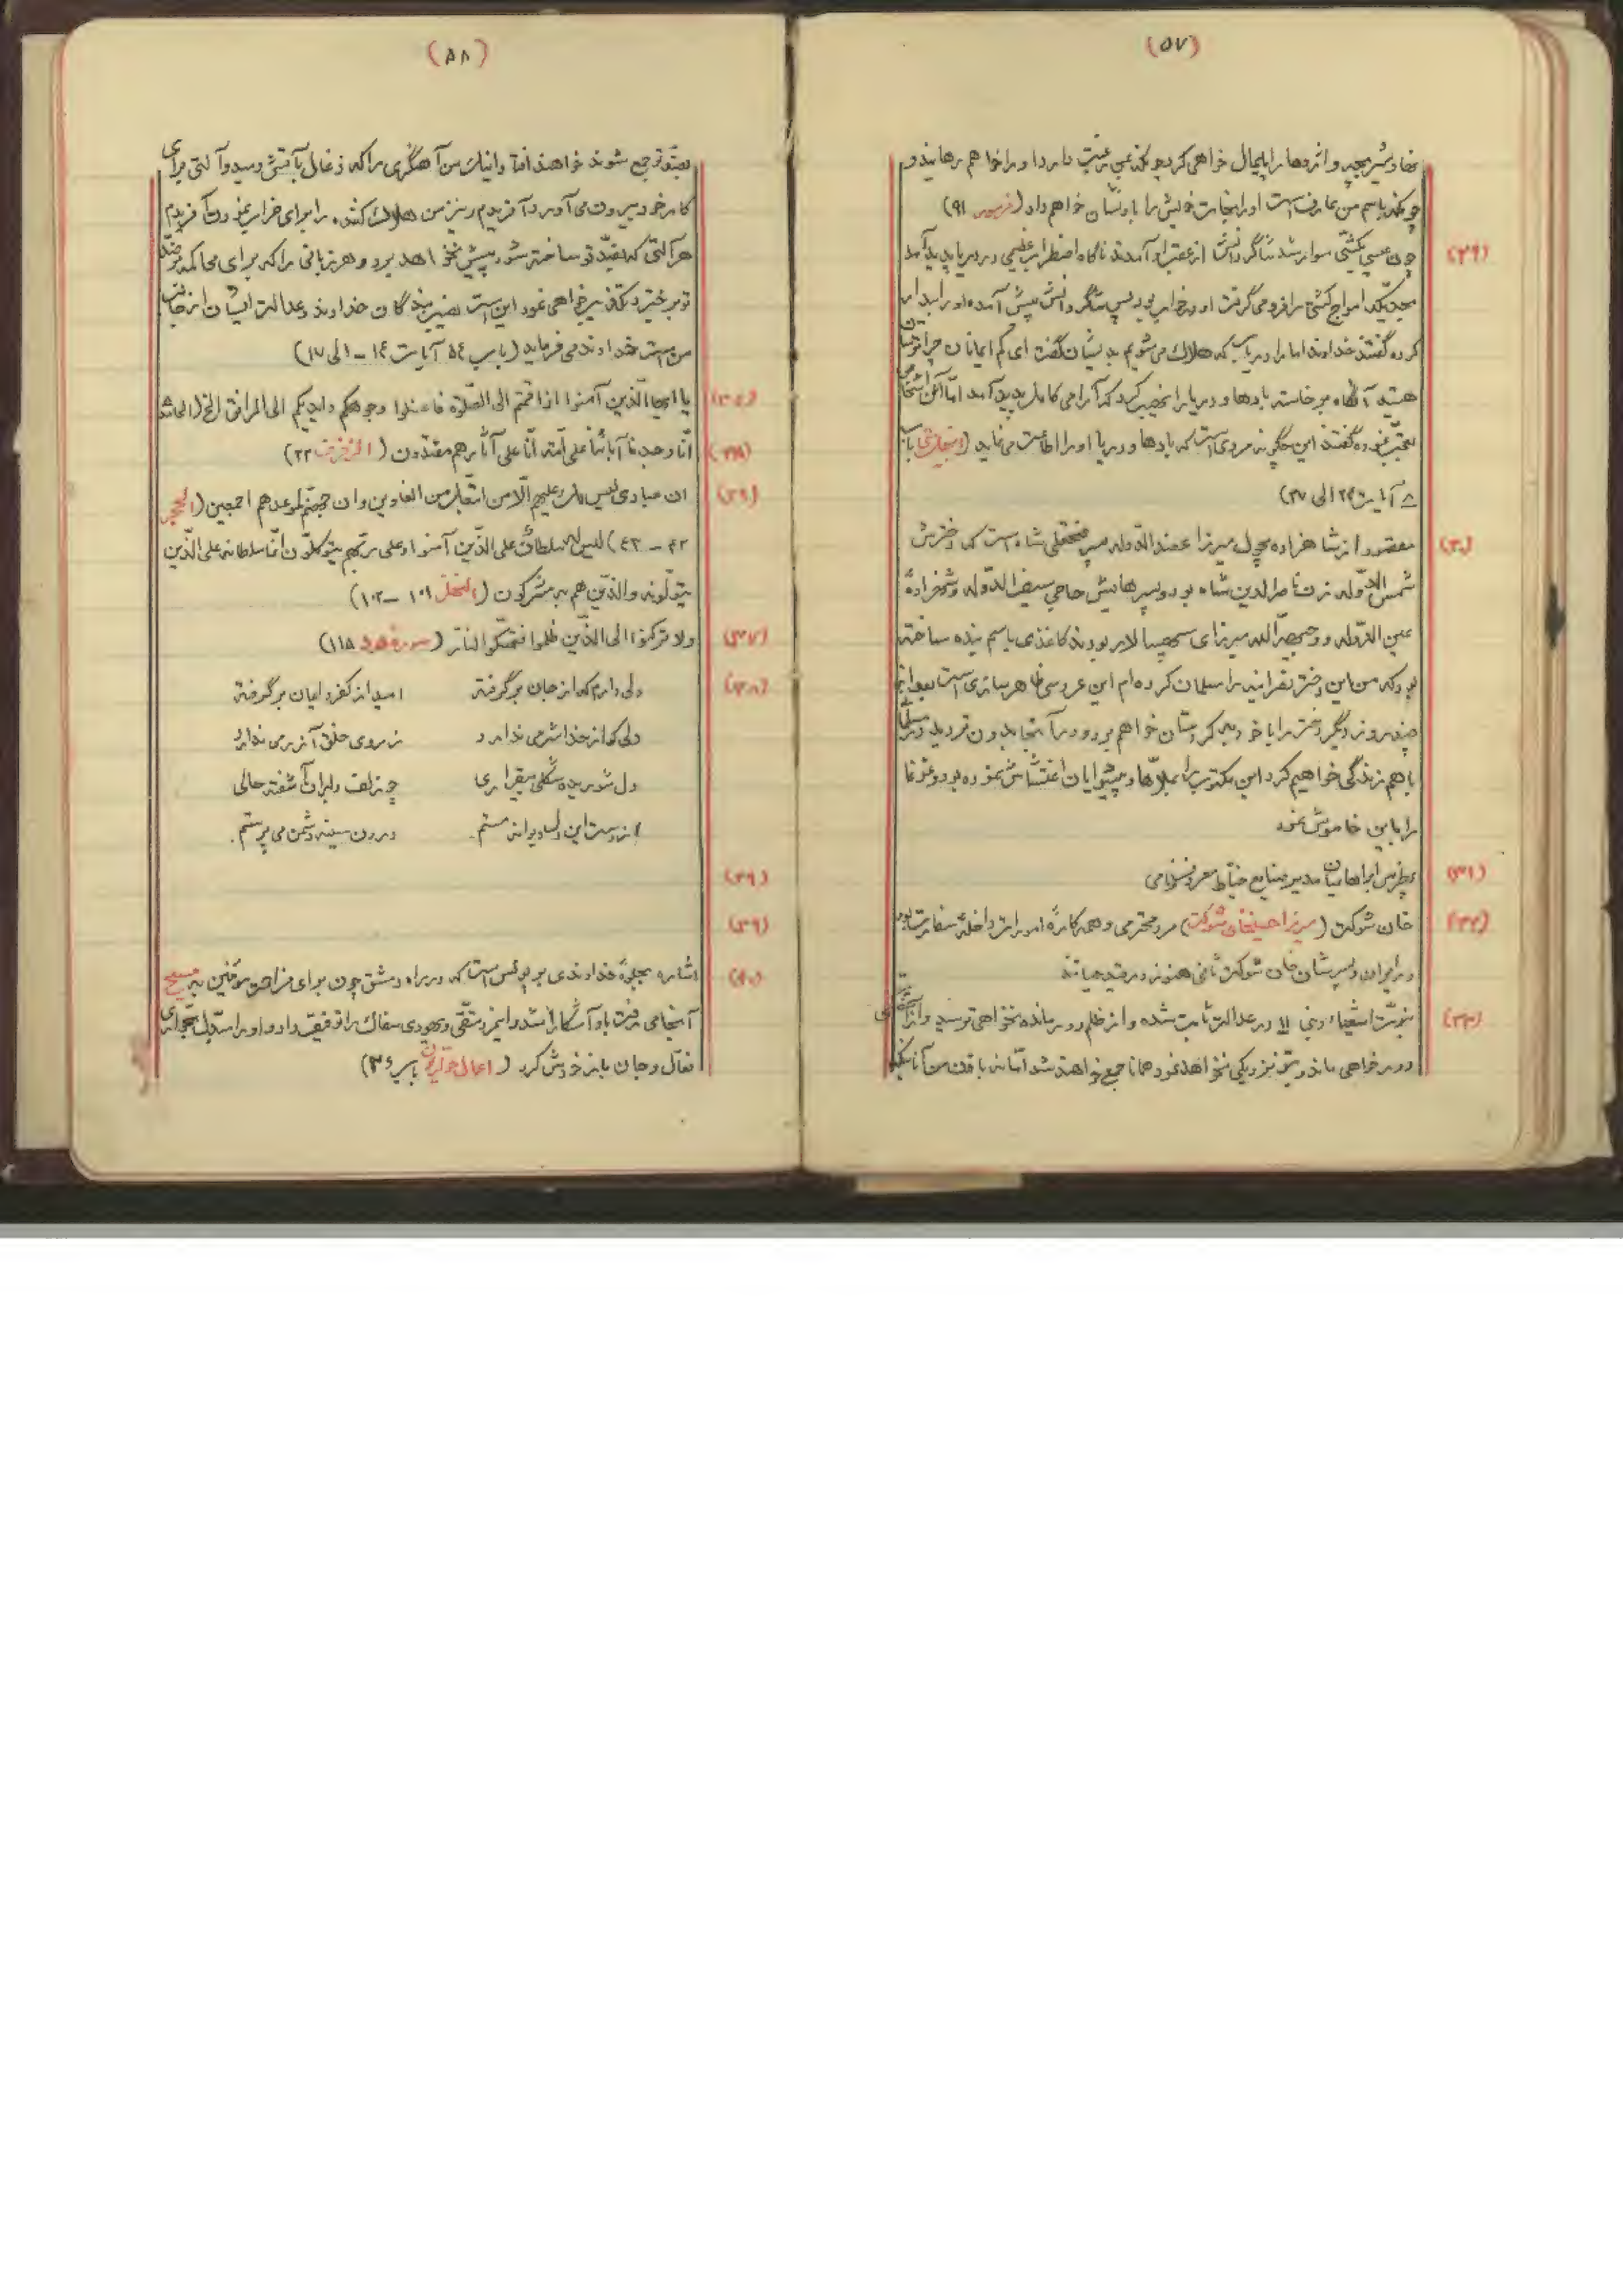 (۵۷)
نهاد شیر بچه و اژدها را پایمال خواهی کرد چونکه بمن رغبت دارد او را خواهم رهانید و
چونکه باسم من عارفست او را نجات خویش را باو نشان خواهم داد (مزمور ۹۱)
(۲۹) چون عیسی بکشتی سوار شد شاگردانش از عقب او آمدند ناگاه اضطراب عظیمی در دریا پدید آمد
بحدیکه امواج کشتی را فرو می گرفت او در خواب بود پس شاگردانش پیش آمده او را بیدار
کرده گفتند خداوندا ما را دریاب که هلاک می شویم بدیشان گفت ای کم ایمانان چرا ترسان
هستید آنگاه برخاسته بادها و دریا را نهیب کرد که آرامی کامل پدید آمد اما آن اشخاص
تعجب نموده گفتند این چگونه مردی است که بادها و دریا او را اطاعت می نماید (انجیل متی باب
۸ آیات ۲۳ الی ۲۷)
(۳۰) مقصود از شاهزاده میرزا عضدالدوله پسر فتحعلی شاه است که دخترش
شمس الدوله زن ناصرالدین شاه بود و پسرهایش حاجی سیف الدوله و شاهزاده
عین الدوله و وجیه الله میرزای سپهسالار بودند کاغذی باسم بنده ساخته
بود که من این دختر نصرانیه را مسلمان کرده ام این عروسی ظاهر سازی است بعد از
چند روز دیگر دختر را با خود به کردستان خواهم برد و در آنجا بدون تردید در
با هم زندگی خواهیم کرد این مکتوب را بملاها و پیشوایان اغتشاش نموده بود و غوغا
را باین خاموش نمود
(۳۱) پطرس ابراهامیان مدیر صنایع خیاط معروف نظامی
(۳۲) خان شوکت (میرزا حسینخان شوکت) مرد محترمی و همه کاره امورات داخله سفارت بود
در ایران و پسرشان خان شوکت ثانی هنوز در قید حیاتند
(۳۳) نبوت اشعیاء نبی !! در عدالت ثابت شده و از ظلم دور مانده نخواهی ترسید و از
دور خواهی ماند و بتو نزدیکی نخواهد نمود همانا جمع خواهند شد اما نه باذن من آنانیکه
(۵۸)
بضد تو جمع شوند خواهند افتاد و اینک من آهنگری را که زغال بآتش دمیده و آلتی برای
کار خود بیرون می آورد آفریدم و نیز من هلاک کننده را برای خراب نمودن آفریدم
هر آلتی که بضد تو ساخته شود پیش نخواهد برد و هر زبانی را که برای محاکمه بضد
تو برخیزد تکذیب خواهی نمود این است نصیب بندگان خداوند و عدالت ایشان از جانب
من است خداوند می فرماید (باب ۵۴ آیات ۱۴ – الی ۱۷)
یا ایها الذین آمنوا اذا قمتم الی الصلوة فاغسلوا وجوهکم و ایدیکم الی المرافق الخ (المائده
انا وجدنا آبائنا علی امة انا علی آثارهم مقتدون (الزخرف ۲۲)
ان عبادی لیس لک علیهم الا من اتبعک من الغاوین و ان جهنم لموعدهم اجمعین (الحجر
۴۲ – ۴۳) لیس له سلطان علی الذین آمنوا و علی ربهم یتوکلون انما سلطانه علی الذین
یتولونه و الذین هم به مشرکون (النحل ۱۰۱ – ۱۰۲)
(۳۷) ولا ترکنوا الی الذین ظلموا فتمسکوا النار (سوره هود ۱۱۵)
(۳۸) دلی دارم که از جان برگرفته امید از کفر و ایمان برگرفته
دلی که از خدا شرمی ندارد ز روی خلق آزرمی ندارد
دل شوریده شکلی بیقراری چو زلف دلبران آشفته حالی
از دست این دل دیوانه مستم. درون سینه دشمن می پرستم.
(۳۹)
(۳۹)
(۴۰) اشاره بجلوه خداوندی بر پولس است که در راه دمشق چون برای مؤمنین به مسیح
آنجا می رفت باو آشکارا شد و این شقی و یهودی سفاک را توفیق داد و او را بدل بحواری
فعال و جان باز خودش کرد (اعمال حواریون